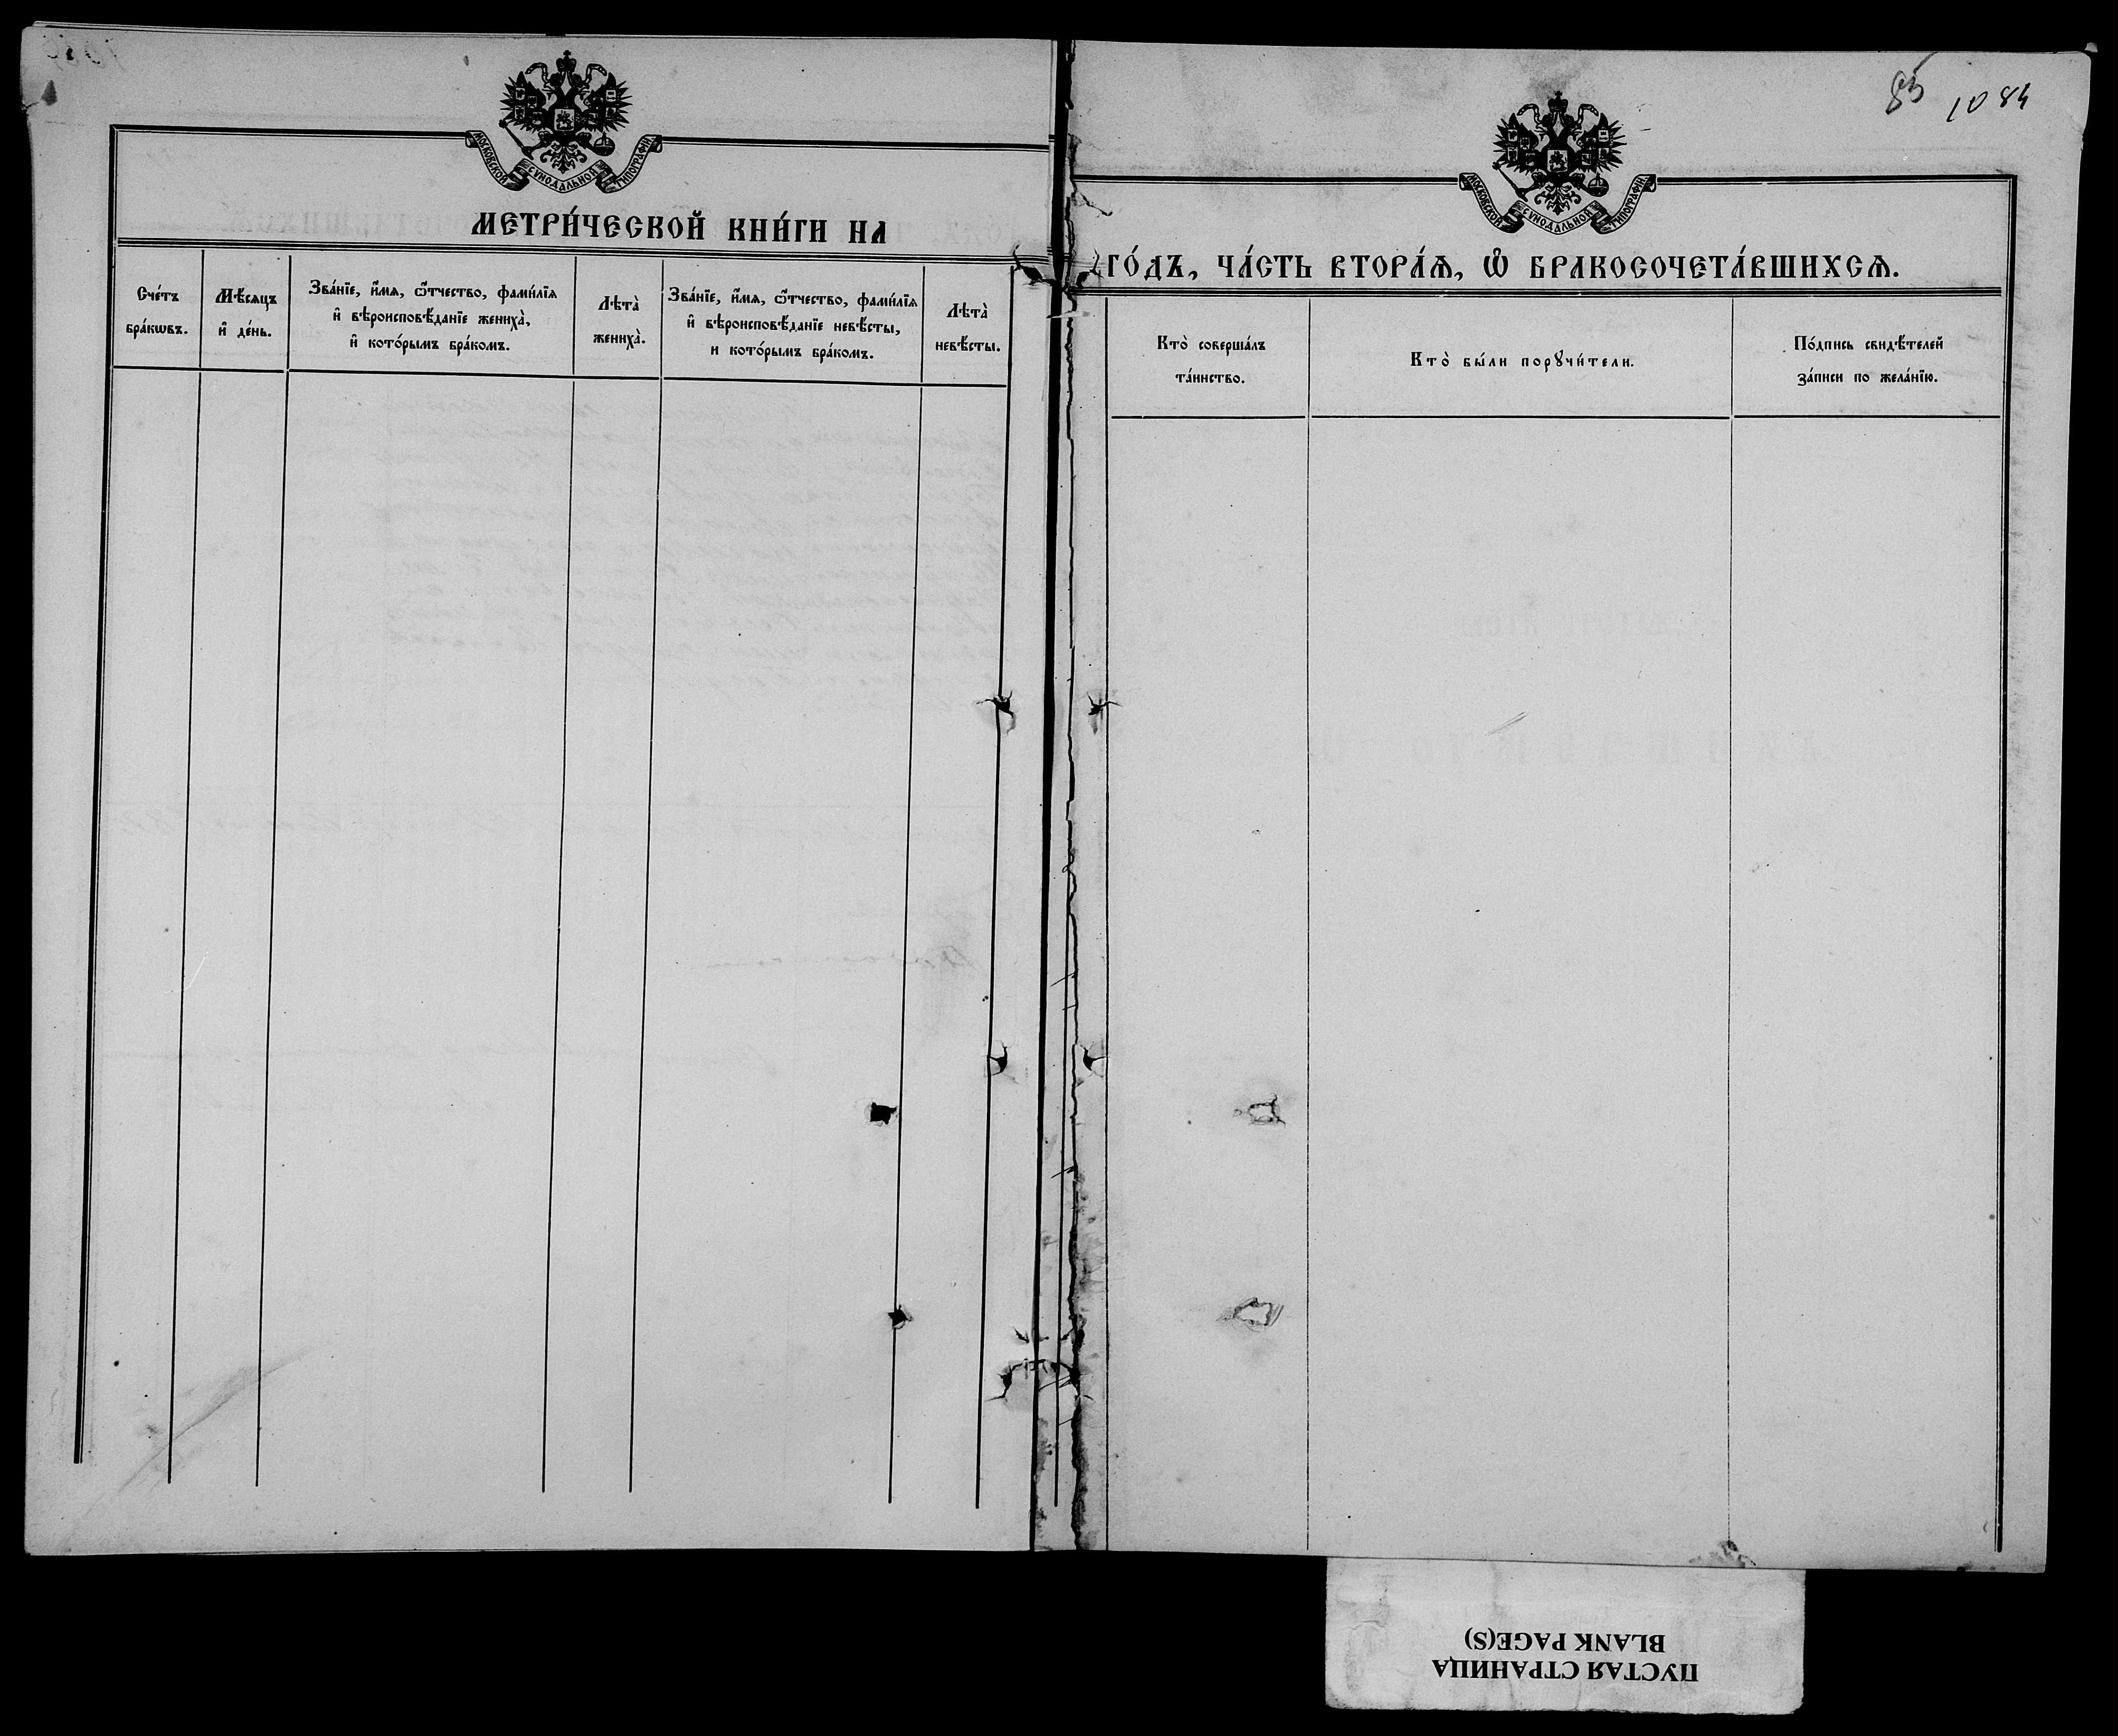 85 1084
МОСКОВСКОЙ СѴНОДАЛЬНОЙ ТИПОГРАФІИ.
МЕТРИ́ЧЕСКОЙ КНИ́ГИ НА
Сче́тъ
бра́кѡвъ.
Мѣ́сяцъ
и҆ де́нь.
Зва́нїе, и҆́мя, ѻ҆́тчество, фами́лїя
и҆ вѣроисповѣ́данїе жениха̀,
и҆ кото́рымъ бра́комъ.
Лѣта̀
жениха̀.
Зва́нїе, и҆́мя, ѻ҆́тчество, фами́лїя
и҆ вѣроисповѣ́данїе невѣ́сты,
и кото́рымъ бра́комъ.
Лѣта̀
невѣ́сты.
МОСКОВСКОЙ СѴНОДАЛЬНОЙ ТИПОГРАФІИ.
ГО́ДЪ, ЧА́СТЬ ВТОРА́Ѧ, Ѡ҆ БРАКОСОЧЕТА́ВШИХСѦ.
Кто̀ соверша́лъ
та́инство.
Кто̀ бы́ли порꙋчи́тели.
По́дпись свидѣ́телей
за́писи по жела́нїю.
ПУСТАЯ СТРАНИЦА
BLANK PAGE(S)